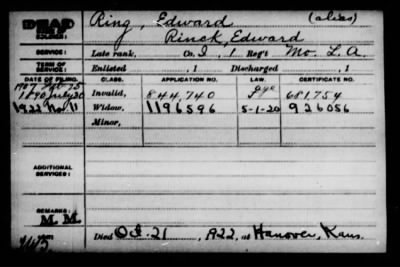 DEAD
Ring, Edward (alias)
Rinck, Edward
SERVICE: Late rank, Co. I, 1 Reg't Mo. L. A.
TERM OF SERVICE: Enlisted , 1 Discharged , 1
DATE OF FILING. CLASS. APPLICATION NO. CERTIFICATE NO.
1890 July 30 Invalid, 844,740 681,754
1922 Nov 11 Widow, 1196596 5-1-20 926056
Minor,
ADDITIONAL SERVICES:
REMARKS:
M. M.
Died Oct. 21, 1922, at Hanover, Kans.